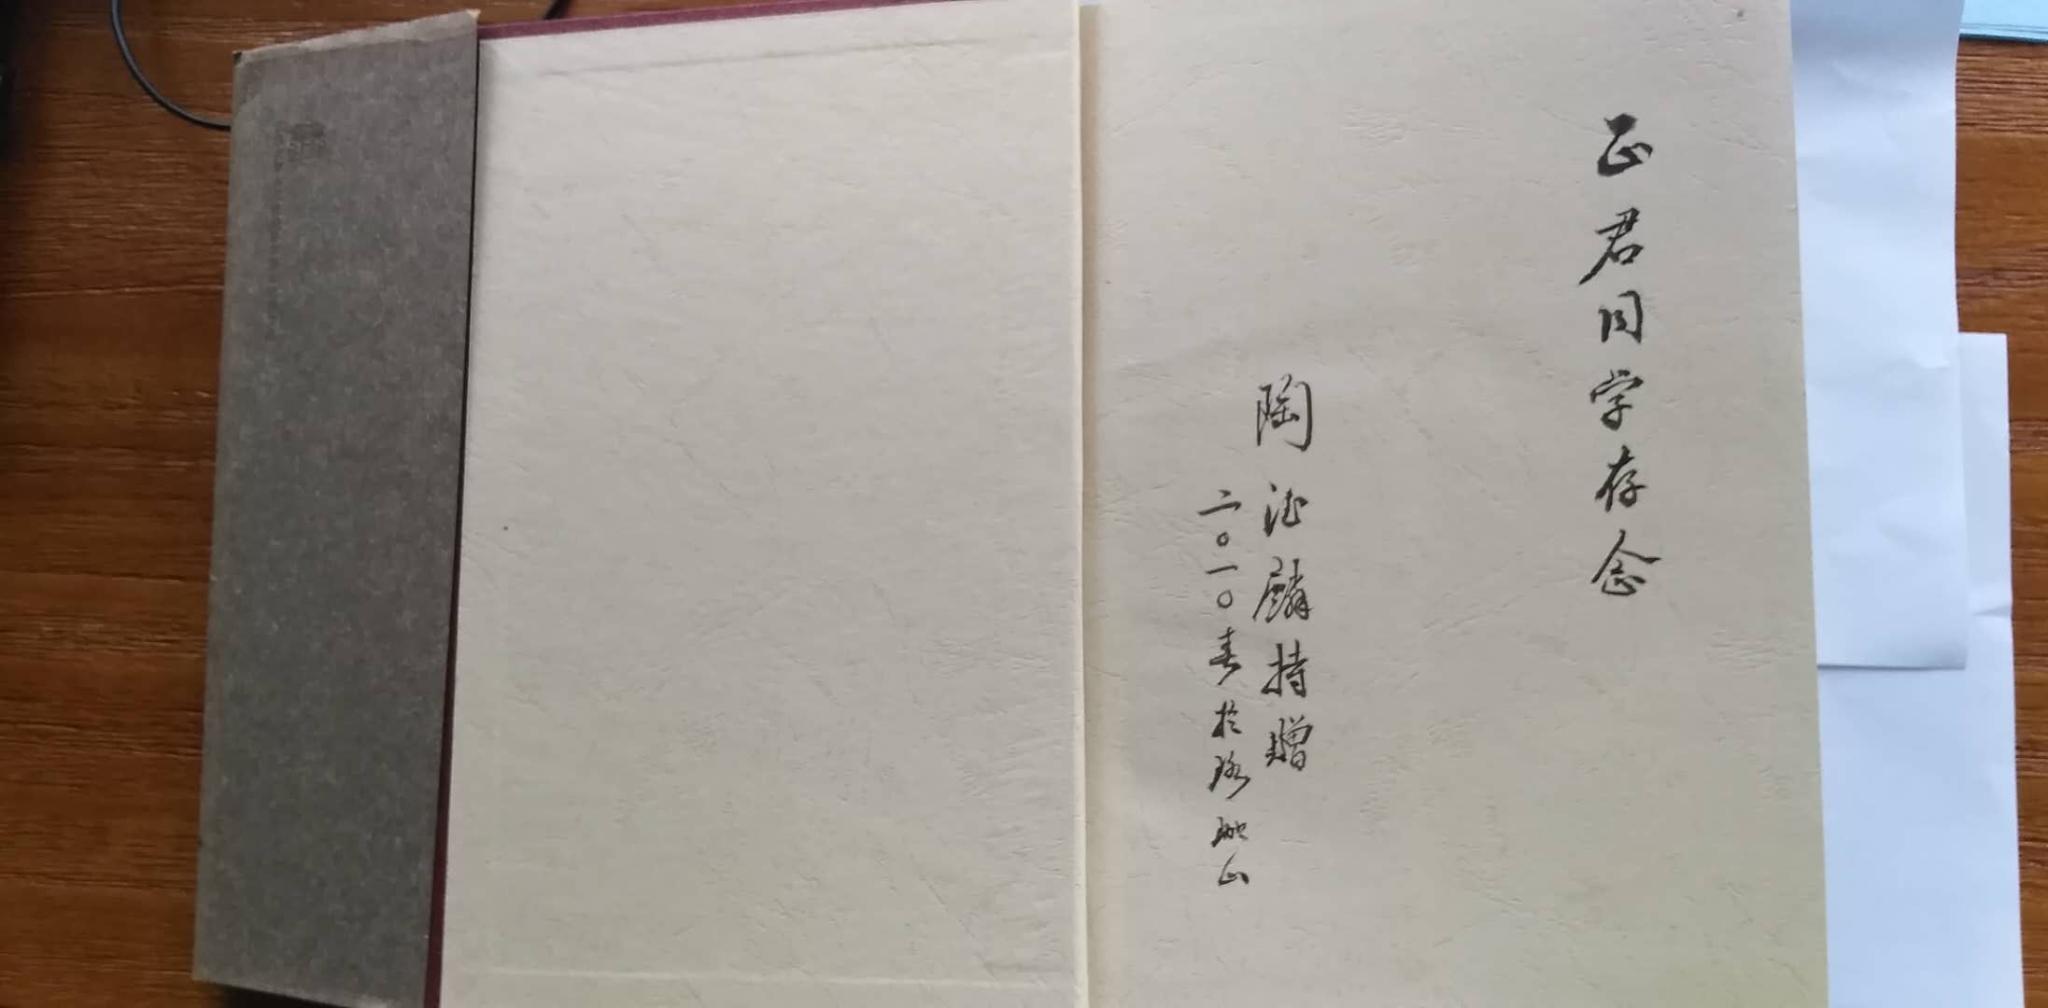 正君同学存念
陶德麟持赠
二〇一〇春於珞珈山